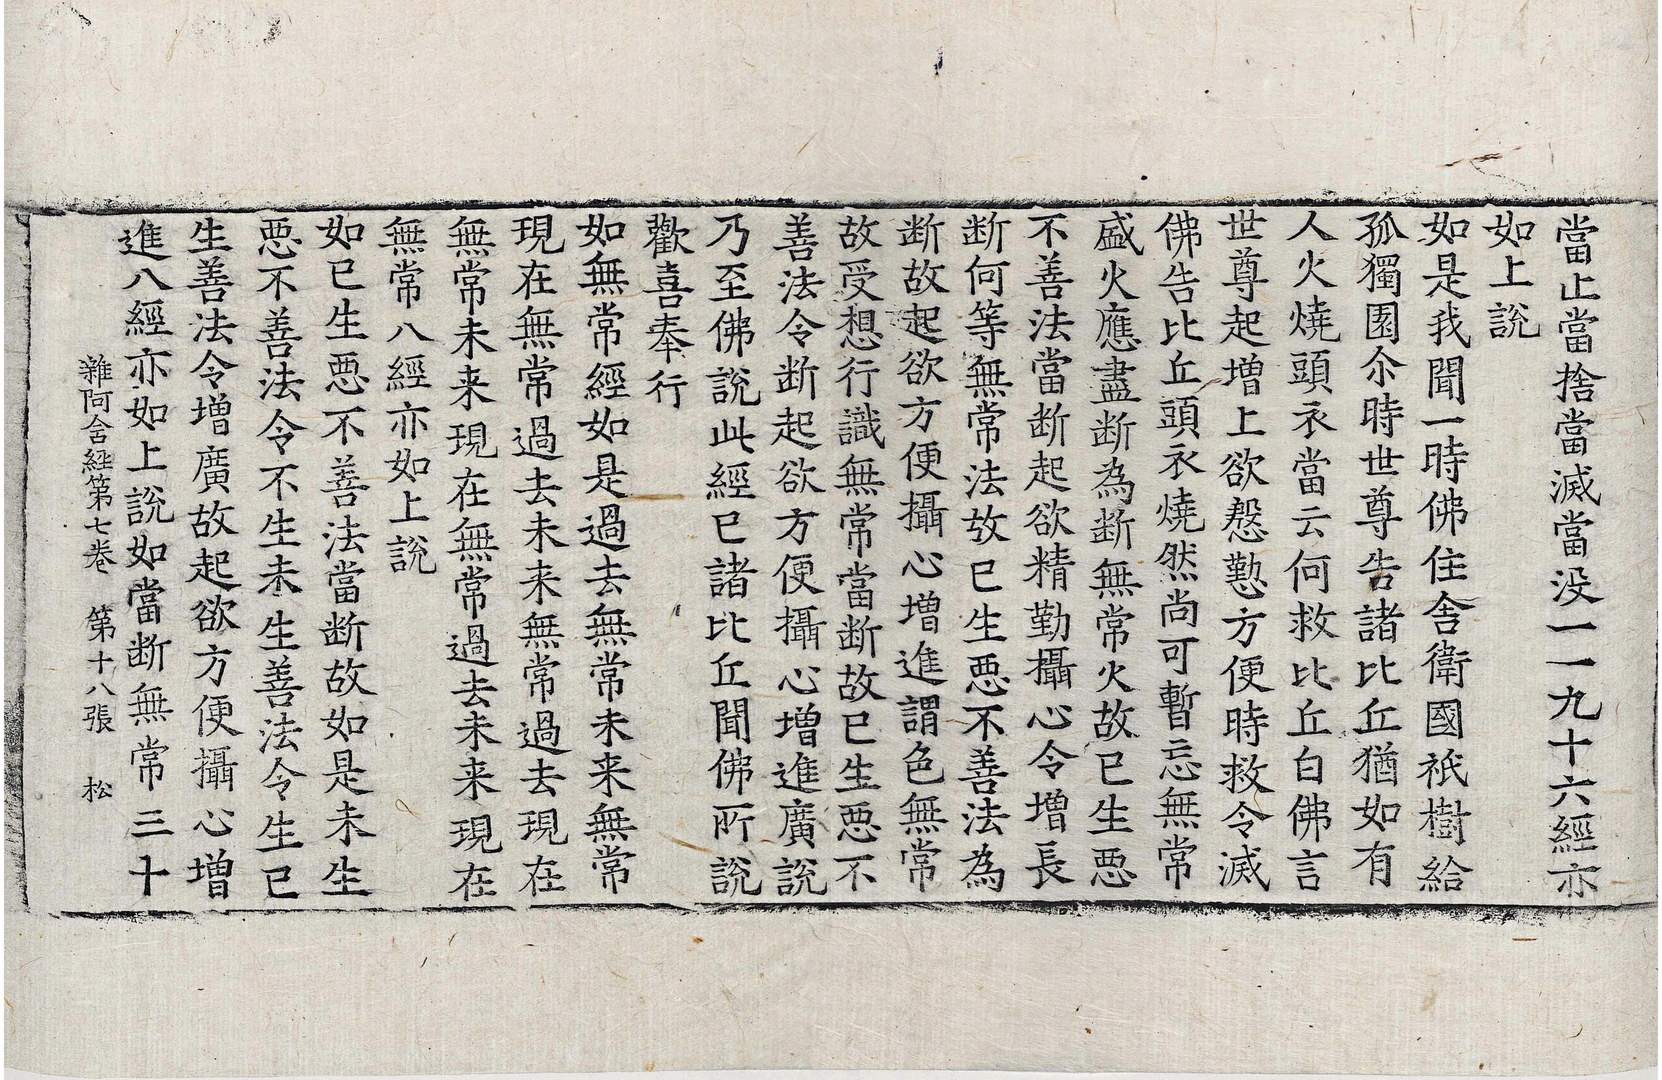 當止當捨當滅當没一一九十六經亦
如上說
如是我聞一時佛住舍衛國祇樹給
孤獨園尒時世尊告諸比丘猶如有
人火燒頭衣當云何救比丘白佛言
世尊起增上欲慇懃方便時救令滅
佛告比丘頭衣燒然尚可暫忘無常
盛火應盡断為断無常火故已生悪
不善法當断起欲精勤攝心令增長
断何等無常法故已生悪不善法為
断故起欲方便攝心增進謂色無常
故受想行識無常當断故已生悪不
善法令断起欲方便攝心增進廣說
乃至佛說此經已諸比丘聞佛所說
歡喜奉行
如無常經如是過去無常未来無常
現在無常過去未来無常過去現在
無常未来現在無常過去未来現在
無常八經亦如上說
如已生悪不善法當断故如是未生
悪不善法令不生未生善法令生已
生善法令增廣故起欲方便攝心增
進八經亦如上說如當断無常三十
雜阿含経第七卷　第十八張　松